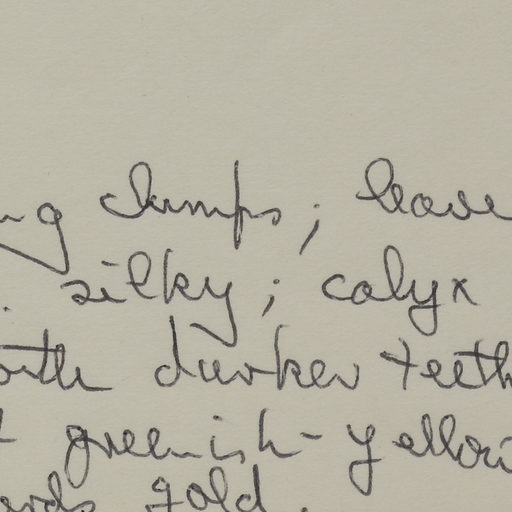 ng clumps; leave
silky; calyx
with darker teeth
greenish-yellow
gold.